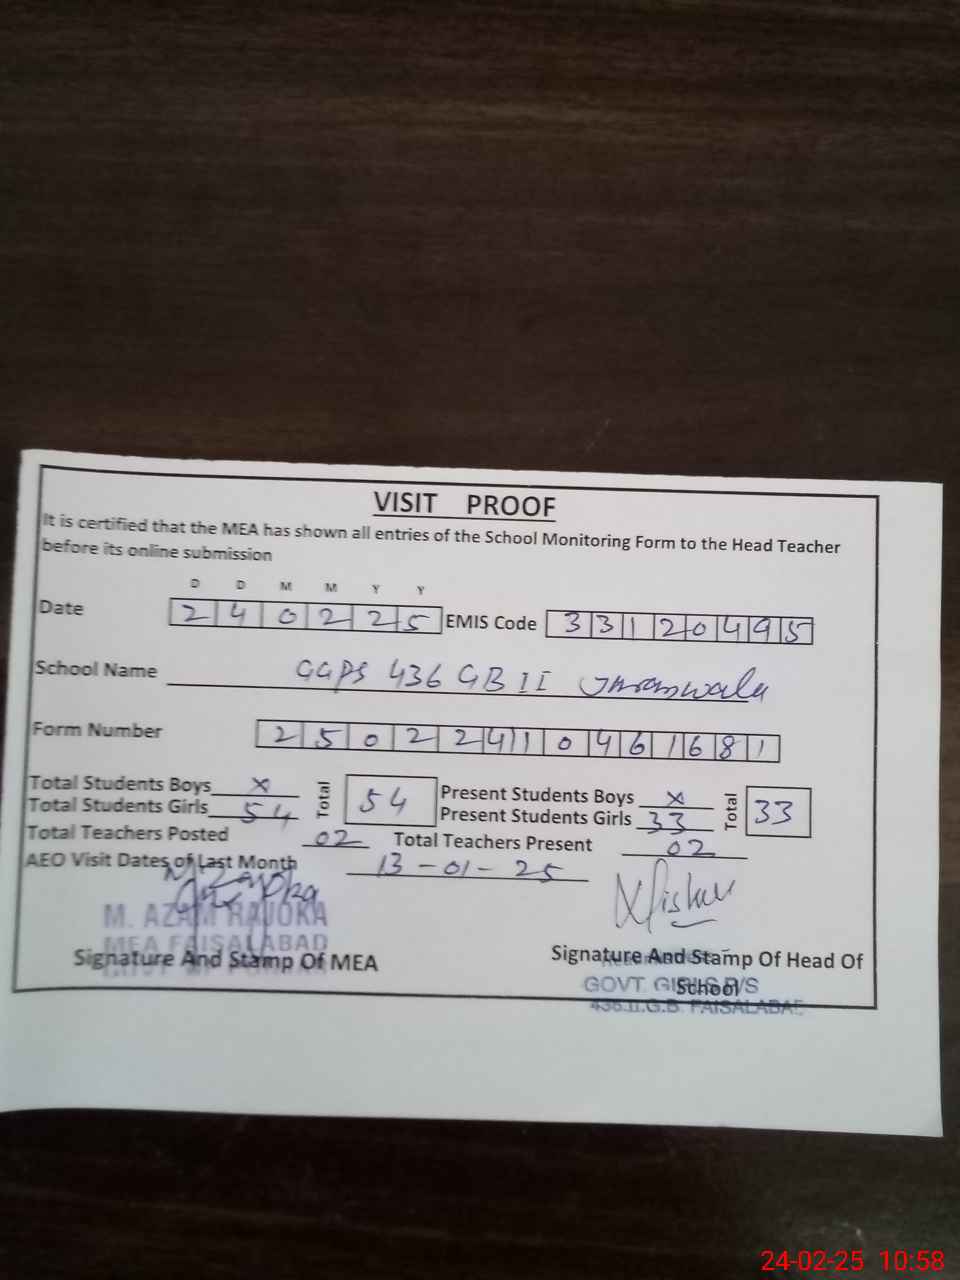 VISIT PROOF
It is certified that the MEA has shown all entries of the School Monitoring Form to the Head Teacher
before its online submission
D D M M Y Y
Date 2 4 0 2 2 5 EMIS Code 3 3 1 2 0 4 9 5
School Name GGPS 436 GB II
Form Number 2 5 0 2 2 4 1 0 4 6 1 6 8 1
Total Students Boys x Total 54 Present Students Boys x Total 33
Total Students Girls 54 Present Students Girls 33
Total Teachers Posted 02 Total Teachers Present 02
AEO Visit Dates of Last Month 13-01-25
M. AZAM RAJOKA
MEA FAISALABAD
Signature And Stamp Of MEA
Signature And Stamp Of Head Of
School
GOVT. GIRLS P/S
436.II.G.B. FAISALABAD
24-02-25 10:58